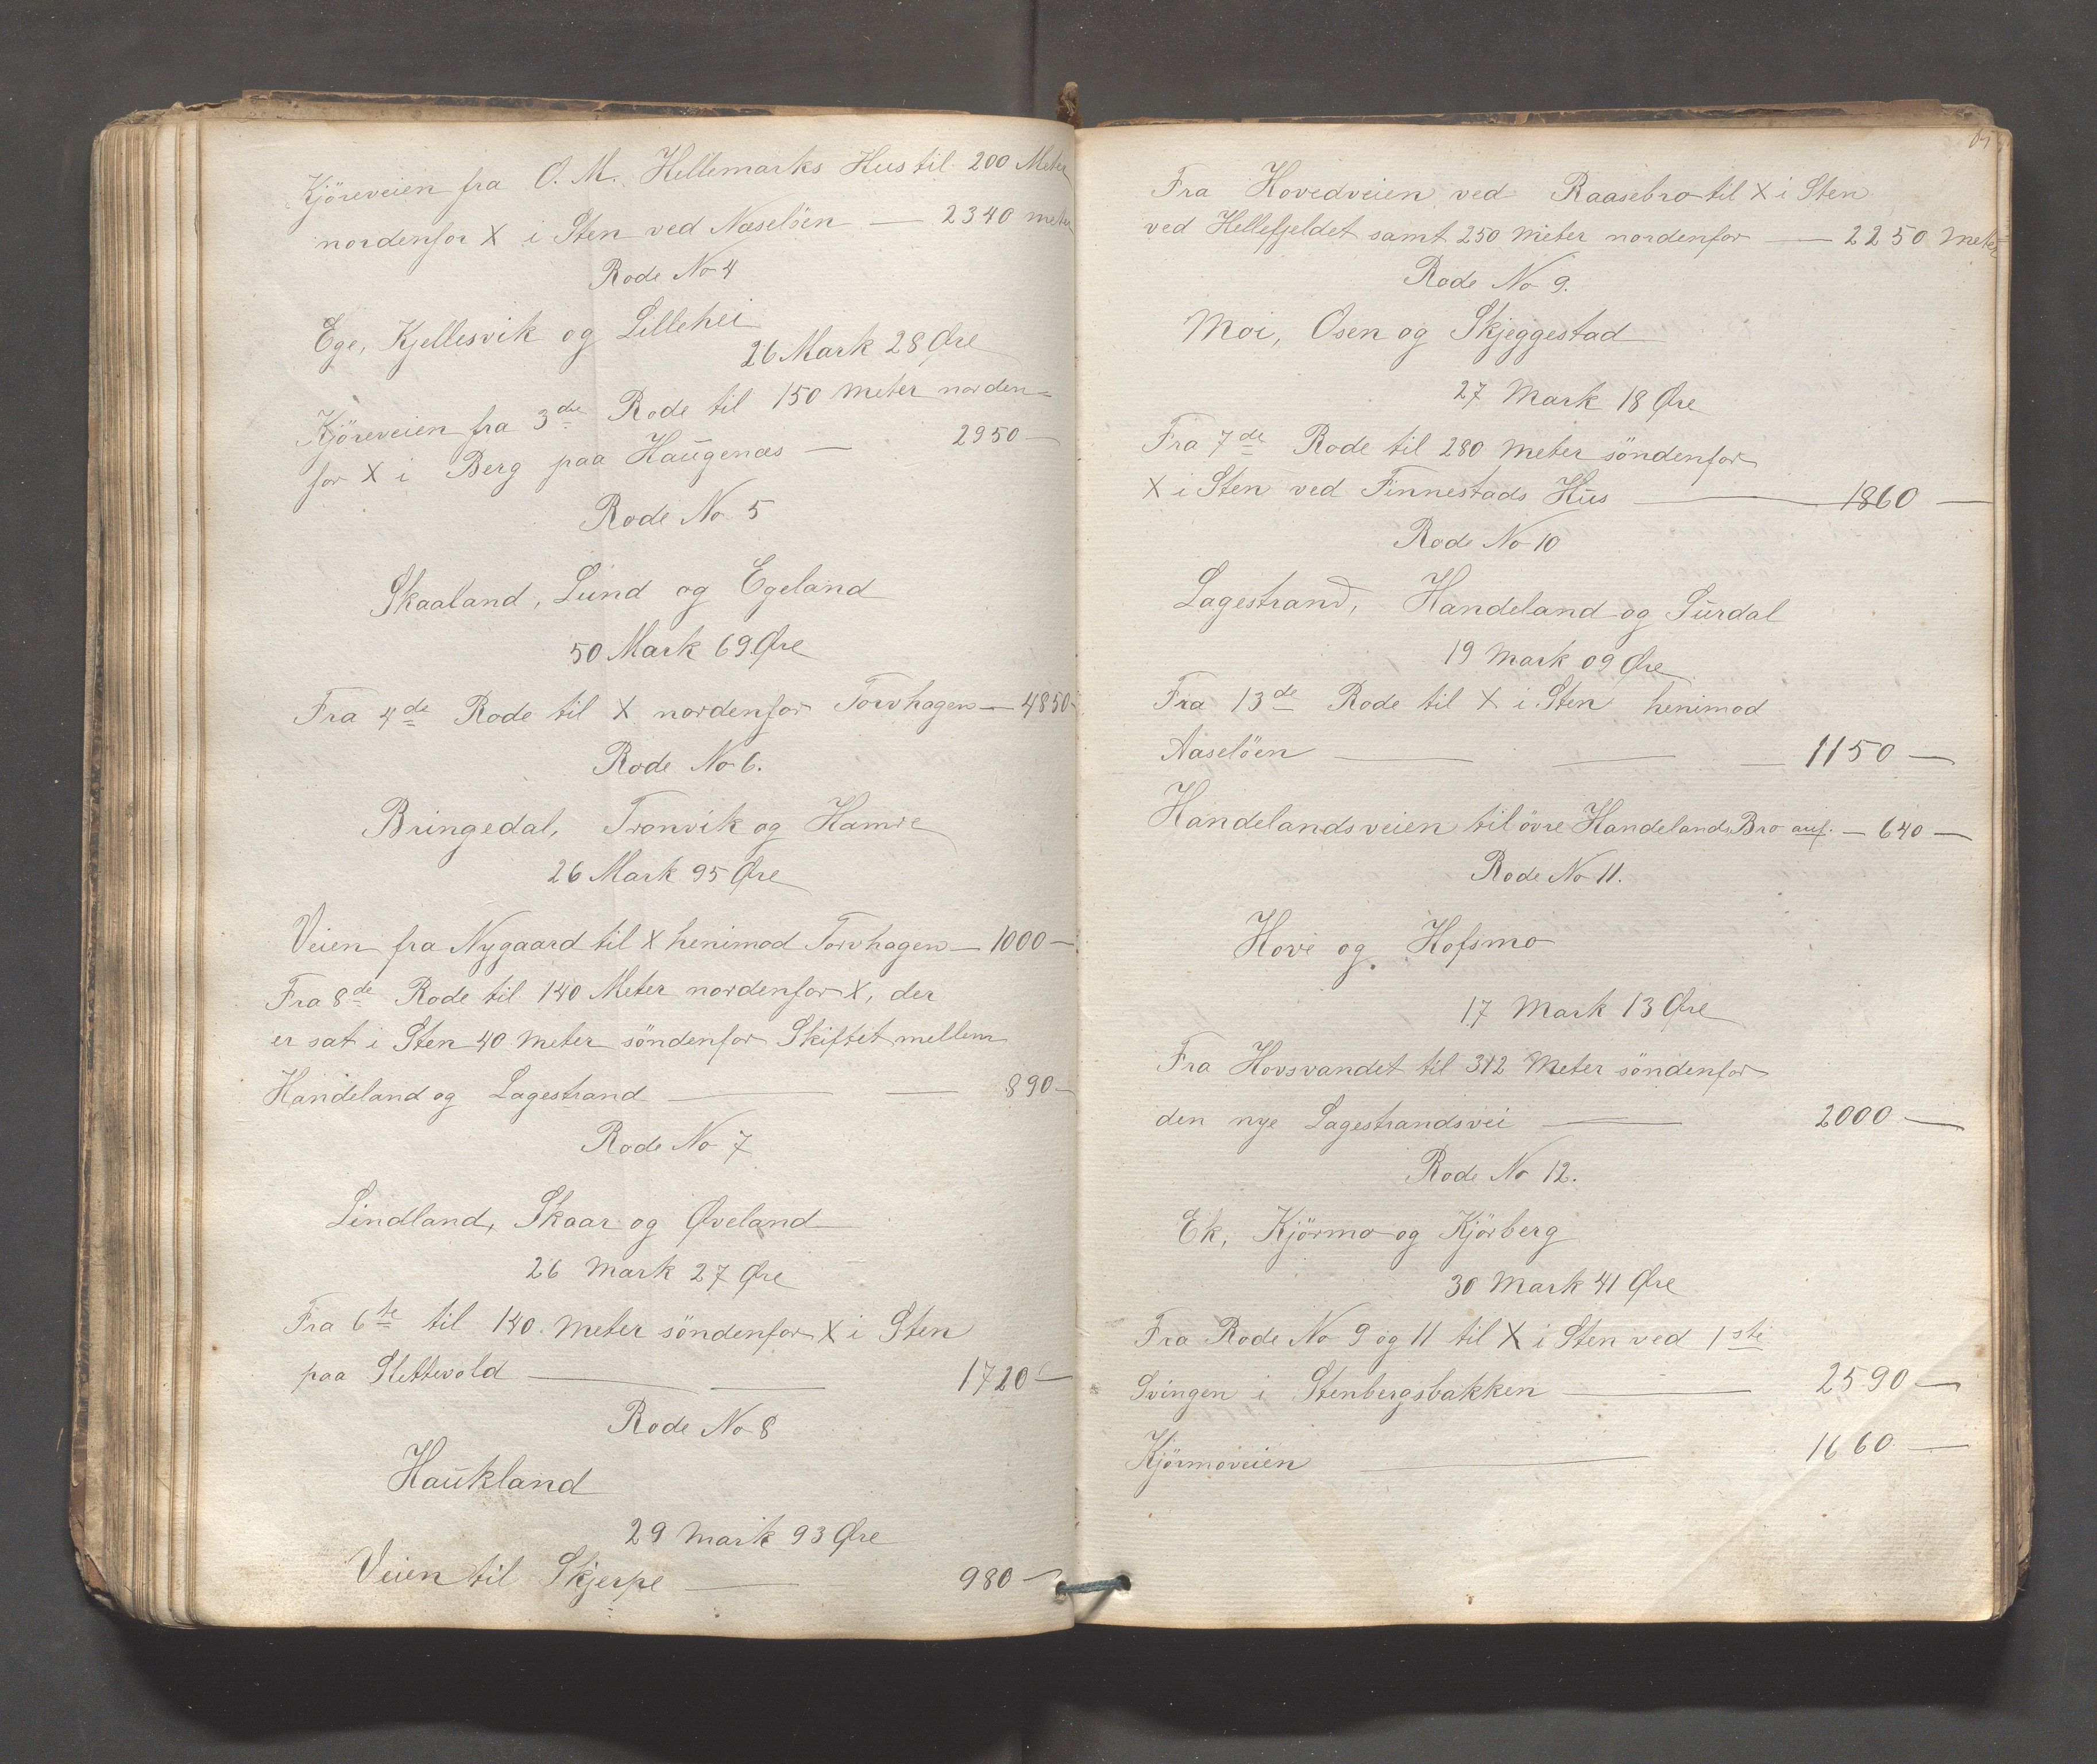 Kjöreveien fra O. M. Hellemarks Hus til 200 Meter
nordenfor X i Sten ved Naselöen — 2340 meter
Rode No 4
Ege, Kjellesvik og Lillehei
26 Mark 28 Øre
Kjöreveien fra 3die Rode til 150 Meter norden-
for X i Berg paa Haugenæs — 2950 —
Rode No 5
Skaaland, Lund og Egeland
50 Mark 69 Øre
Fra 4de Rode til X nordenfor Torvhagen — 4850 -
Rode No 6.
Bringedal, Tronvik og Hamre
26 Mark 95 Øre
Veien fra Nygaard til X henimod Torvhagen — 1000 —
Fra 8de Rode til 140 Meter nordenfor X, der
er sat i Sten 40 Meter söndenfor Skiftet mellem
Handeland og Lagestrand — — 890 —
Rode No 7
Lindland, Skaar og Øveland
26 Mark 27 Øre
Fra 6te til 140. Meter söndenfor X i Sten
paa Slettevold — — 1720 —
Rode No 8
Haukland
29 Mark 93 Øre
Veien til Skjerpe — 980 —
Fra Hovedveien ved Raasebro til X i Sten
ved Hellefjeldet samt 250 Meter nordenfor — 2250 Meter
Rode No 9.
Moi, Osen og Skjeggestad
27 Mark 18 Øre
Fra 7de Rode til 280 Meter söndenfor
X i Sten ved Finnestads Hus — 1860 —
Rode No 10
Lagestrand, Handeland og Surdal
19 Mark 09 Øre
Fra 13de Rode til X i Sten henimod
Aaselöen — — — 1150 —
Handelandsveien til övre Handelands Bro — 640 —
Rode No 11.
Hove og Hofsmo
17 Mark 13 Øre
Fra Hovsvandet til 312 Meter söndenfor
den nye Lagestrandsvei — 2000 —
Rode No 12.
Ek, Kjörmo og Kjörberg
30 Mark 41 Øre
Fra Rode No 9 og 11 til X i Sten ved 1ste
Svingen i Stenbergsbakken — 2590 —
Kjörmoveien — 1660 —